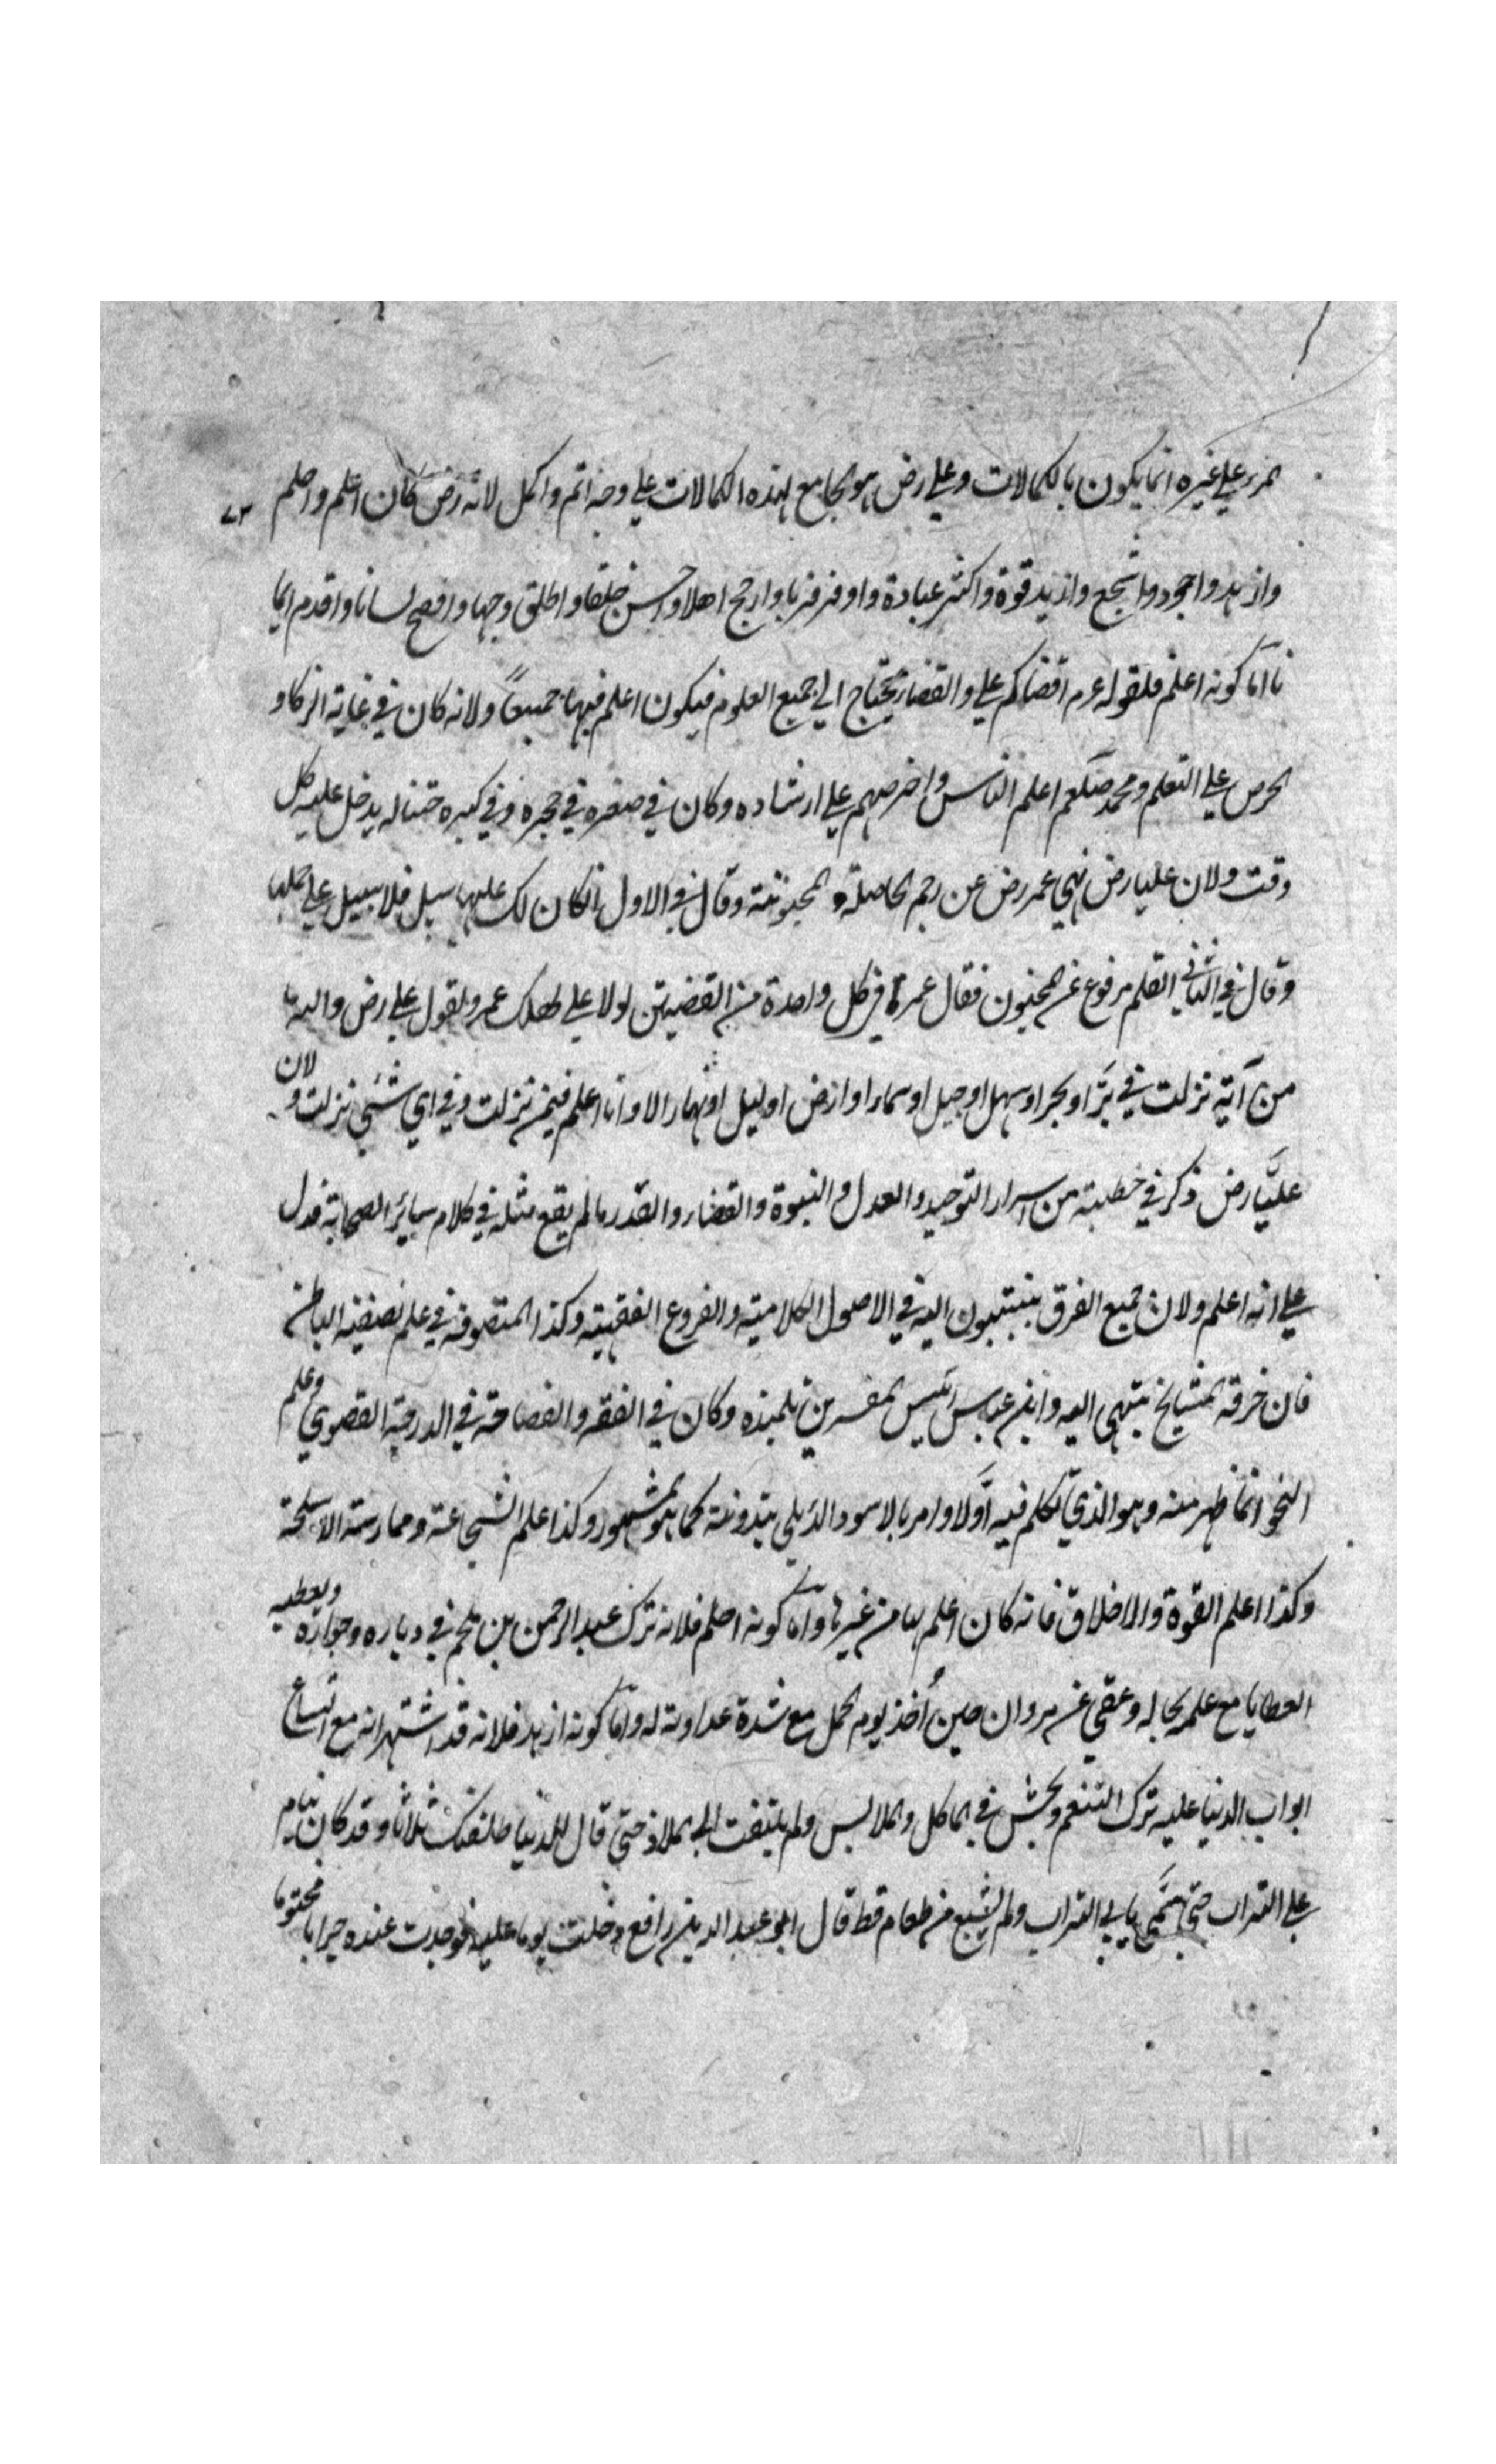 المرء علي غيره انما يكون بالكمالات وعلي رض هو الجامع لهذه الكمالات علي وجه اتم واكمل لانه رض كان اعلم واحلم ٧٣
وازهد واجود واشجع وازيد قوة واكثر عبادة واوفر قربا وارجح اهلا واحسن خلقا واطلق وجها وافصح لسانا واقدم ايما
نا اما كونه اعلم فلقوله عم اقضاكم علي والقضاء يحتاج الي جميع العلوم فيكون اعلم فيها جميعاً ولانه كان في غاية الزكاو
الحرص علي التعلم ومحمد صلعم اعلم الناس واحرصهم علي ارشاده وكان في صغره في حجره وفي كبره ختنا له يدخل عليه كل
وقت ولان عليا رض نهي عمر رض عن رجم الحاملة والمجنونة وقال في الاول ان كان لك عليها سبيل فلا سبيل علي حملها
وقال في الثاني القلم مرفوع عن المجنون فقال عمر في كل واحدة من القضيتين لولا علي لهلك عمر ولقول علي رض والله ما
من آية نزلت في برّ او بحر او سهل او جبل او سماء او ارض او ليل او نهار الا وانا اعلم فيمن نزلت وفي اي شئي نزلت و لان
عليّا رض ذكر في خطبته من اسرار التوحيد والعدل والنبوة والقضاء والقدر ما لم يقع مثله في كلام سائر الصحابة فدل
علي انه اعلم ولان جميع الفرق ينتسبون اليه في الاصول الكلامية والفروع الفقهية وكذا المتصوفة في علم تصفية الباطن
فان خرقة المشايخ تنتهي اليه وابن عباس رئيس المفسرين تلميذه وكان في الفقه والفصاحة في الدرجة القصوي وعلم
النحو انما ظهر منه وهو الذي تكلم فيه اولا وامر بالاسود الديلي بتدوينه كما هو المشهور وكذا علم الشجاعة وممارسة الاسلحة
وكذا اعلم القوة والاخلاق فانه كان اعلم بها من غيرها واما كونه احلم فلانه ترك عبد الرحمن بن ملجم في دياره وجواره ويعطيه
العطايا مع علمه بحاله وعفي عن مروان حين اُخذ يوم الجمل مع شدة عداوته له واما كونه ازهد فلانه قد اشتهر انه مع اتساع
ابواب الدنيا عليه ترك التنعم وتخشن في المآكل والملابس ولم يلتفت الي الملاذ حتي قال للدنيا طلقتك ثلاثا وقد كان ينام
علي التراب حتي سمي بابي التراب ولم يشبع من طعام قط قال ابو عبد الله بن رافع دخلت يوما عليه فوجدت عنده جرابا مختوما